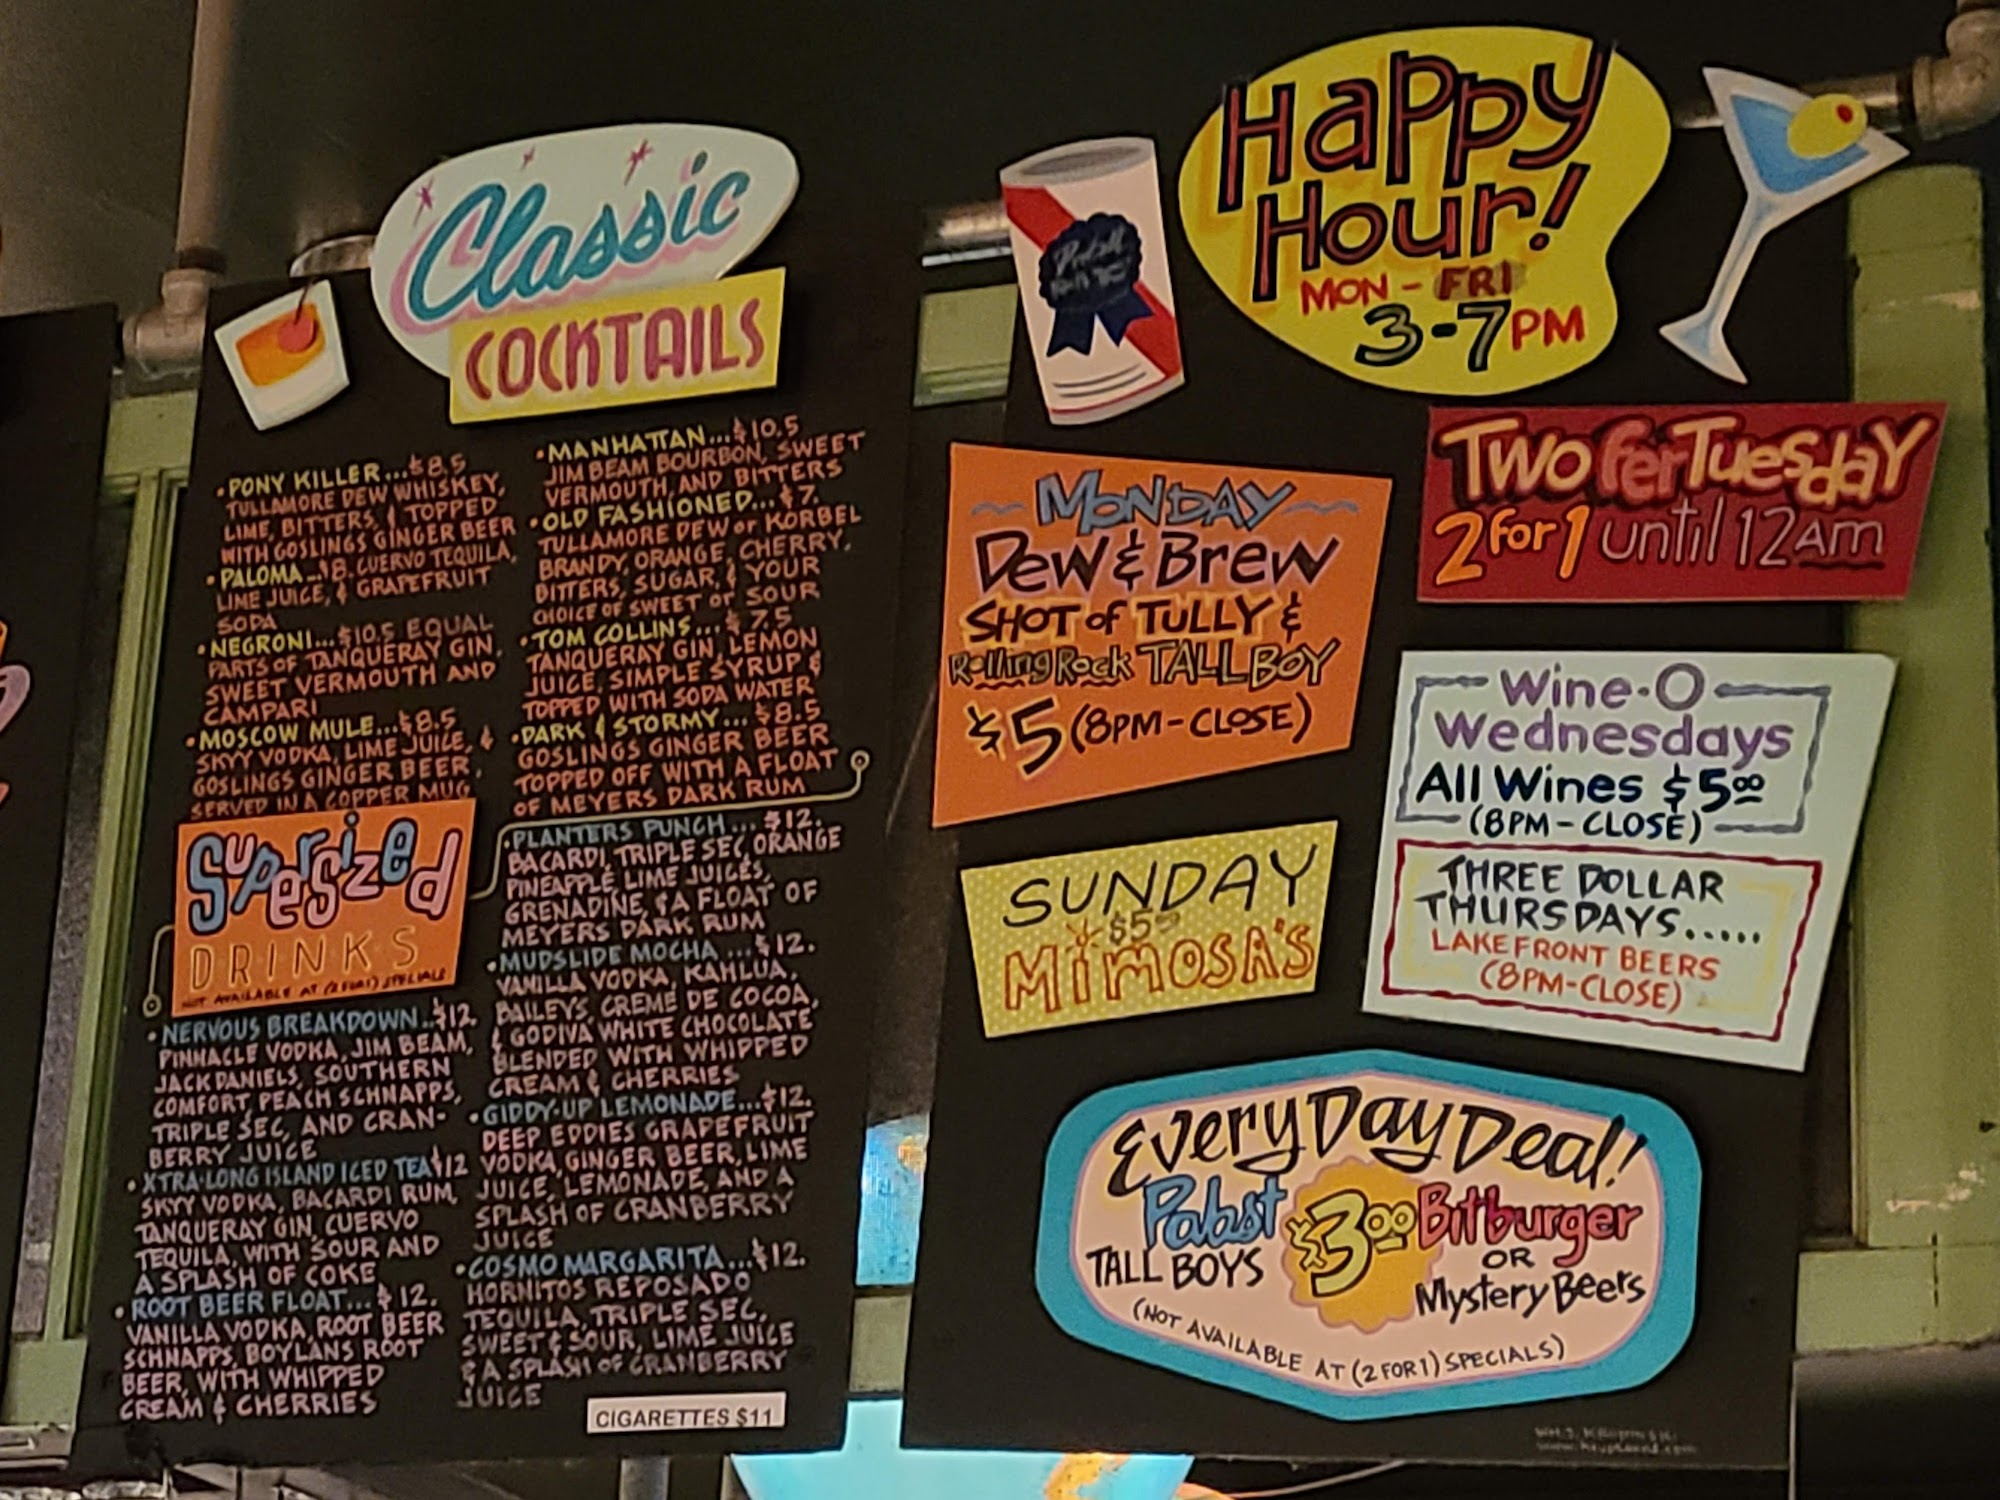 Classic
COCKTAILS
• PONY KILLER...$8.5
TULLAMORE DEW WHISKEY,
LIME, BITTERS, & TOPPED
WITH GOSLINGS GINGER BEER
• PALOMA...$8. CUERVO TEQUILA,
LIME JUICE, & GRAPEFRUIT
SODA
• NEGRONI...$10.5 EQUAL
PARTS OF TANQUERAY GIN,
SWEET VERMOUTH AND
CAMPARI
• MOSCOW MULE...$8.5
SKYY VODKA, LIME JUICE, &
GOSLINGS GINGER BEER,
SERVED IN A COPPER MUG
• MANHATTAN...$10.5
JIM BEAM BOURBON, SWEET
VERMOUTH, AND BITTERS
• OLD FASHIONED...$7.
TULLAMORE DEW or KORBEL
BRANDY, ORANGE, CHERRY,
BITTERS, SUGAR, & YOUR
CHOICE OF SWEET or SOUR
• TOM COLLINS...$7.5
TANQUERAY GIN, LEMON
JUICE, SIMPLE SYRUP &
TOPPED WITH SODA WATER
• DARK & STORMY...$8.5
GOSLINGS GINGER BEER
TOPPED OFF WITH A FLOAT
OF MEYERS DARK RUM
Supersized
DRINKS
NOT AVAILABLE AT (2 FOR 1) SPECIALS
• NERVOUS BREAKDOWN...$12.
PINNACLE VODKA, JIM BEAM,
JACK DANIELS, SOUTHERN
COMFORT, PEACH SCHNAPPS,
TRIPLE SEC, AND CRAN-
BERRY JUICE
• XTRA-LONG ISLAND ICED TEA $12
SKYY VODKA, BACARDI RUM,
TANQUERAY GIN, CUERVO
TEQUILA, WITH SOUR AND
A SPLASH OF COKE
• ROOT BEER FLOAT...$12.
VANILLA VODKA, ROOT BEER
SCHNAPPS, BOYLANS ROOT
BEER, WITH WHIPPED
CREAM & CHERRIES
• PLANTERS PUNCH...$12.
BACARDI, TRIPLE SEC, ORANGE
PINEAPPLE, LIME JUICES,
GRENADINE, & A FLOAT OF
MEYERS DARK RUM
• MUDSLIDE MOCHA...$12.
VANILLA VODKA, KAHLUA,
BAILEYS, CREME DE COCOA,
& GODIVA WHITE CHOCOLATE
BLENDED WITH WHIPPED
CREAM & CHERRIES
• GIDDY-UP LEMONADE...$12.
DEEP EDDIES GRAPEFRUIT
VODKA, GINGER BEER, LIME
JUICE, LEMONADE, AND A
SPLASH OF CRANBERRY
JUICE
• COSMO MARGARITA...$12.
HORNITOS REPOSADO
TEQUILA, TRIPLE SEC,
SWEET & SOUR, LIME JUICE
& A SPLASH OF CRANBERRY
JUICE
CIGARETTES $11
Happy
Hour!
MON - FRI
3-7PM
Pabst
MONDAY
DEW & BREW
SHOT of TULLY &
Rolling Rock TALL BOY
$5 (8PM-CLOSE)
TWO fer TuesdaY
2 for 1 until 12AM
Wine-O
Wednesdays
All Wines $5.00
(8PM-CLOSE)
THREE DOLLAR
THURSDAYS.....
LAKEFRONT BEERS
(8PM-CLOSE)
SUNDAY
$5
MIMOSA'S
EveryDay Deal!
Pabst
TALL BOYS
$3.00
Bitburger
OR
Mystery Beers
(NOT AVAILABLE AT (2 FOR 1) SPECIALS)